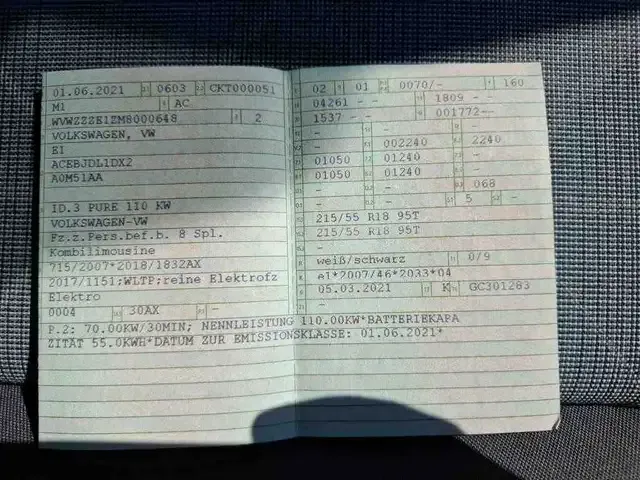 01.06.2021 0603 CKT000051
M1 AC
WVWZZZE1ZM8000648 2
VOLKSWAGEN, VW
E1
ACEBJDL1DX2
A0M51AA
ID.3 PURE 110 KW
VOLKSWAGEN-VW
Fz.z.Pers.bef.b. 8 Spl.
Kombilimousine
715/2007*2018/1832AX
2017/1151;WLTP;reine Elektrofz
Elektro
0004 30AX -
02 01 0070/- 160
04261 - - 1809 - -
1537 - - 001772- -
- - -
- 002240 2240
01050 01240 -
01050 01240 -
- - 068
- - 5 -
215/55 R18 95T
215/55 R18 95T
-
weiß/schwarz 0/9
e1*2007/46*2033*04
05.03.2021 K GC301283
-
P.2: 70.00KW/30MIN; NENNLEISTUNG 110.00KW*BATTERIEKAPA
ZITÄT 55.0KWH*DATUM ZUR EMISSIONSKLASSE: 01.06.2021*